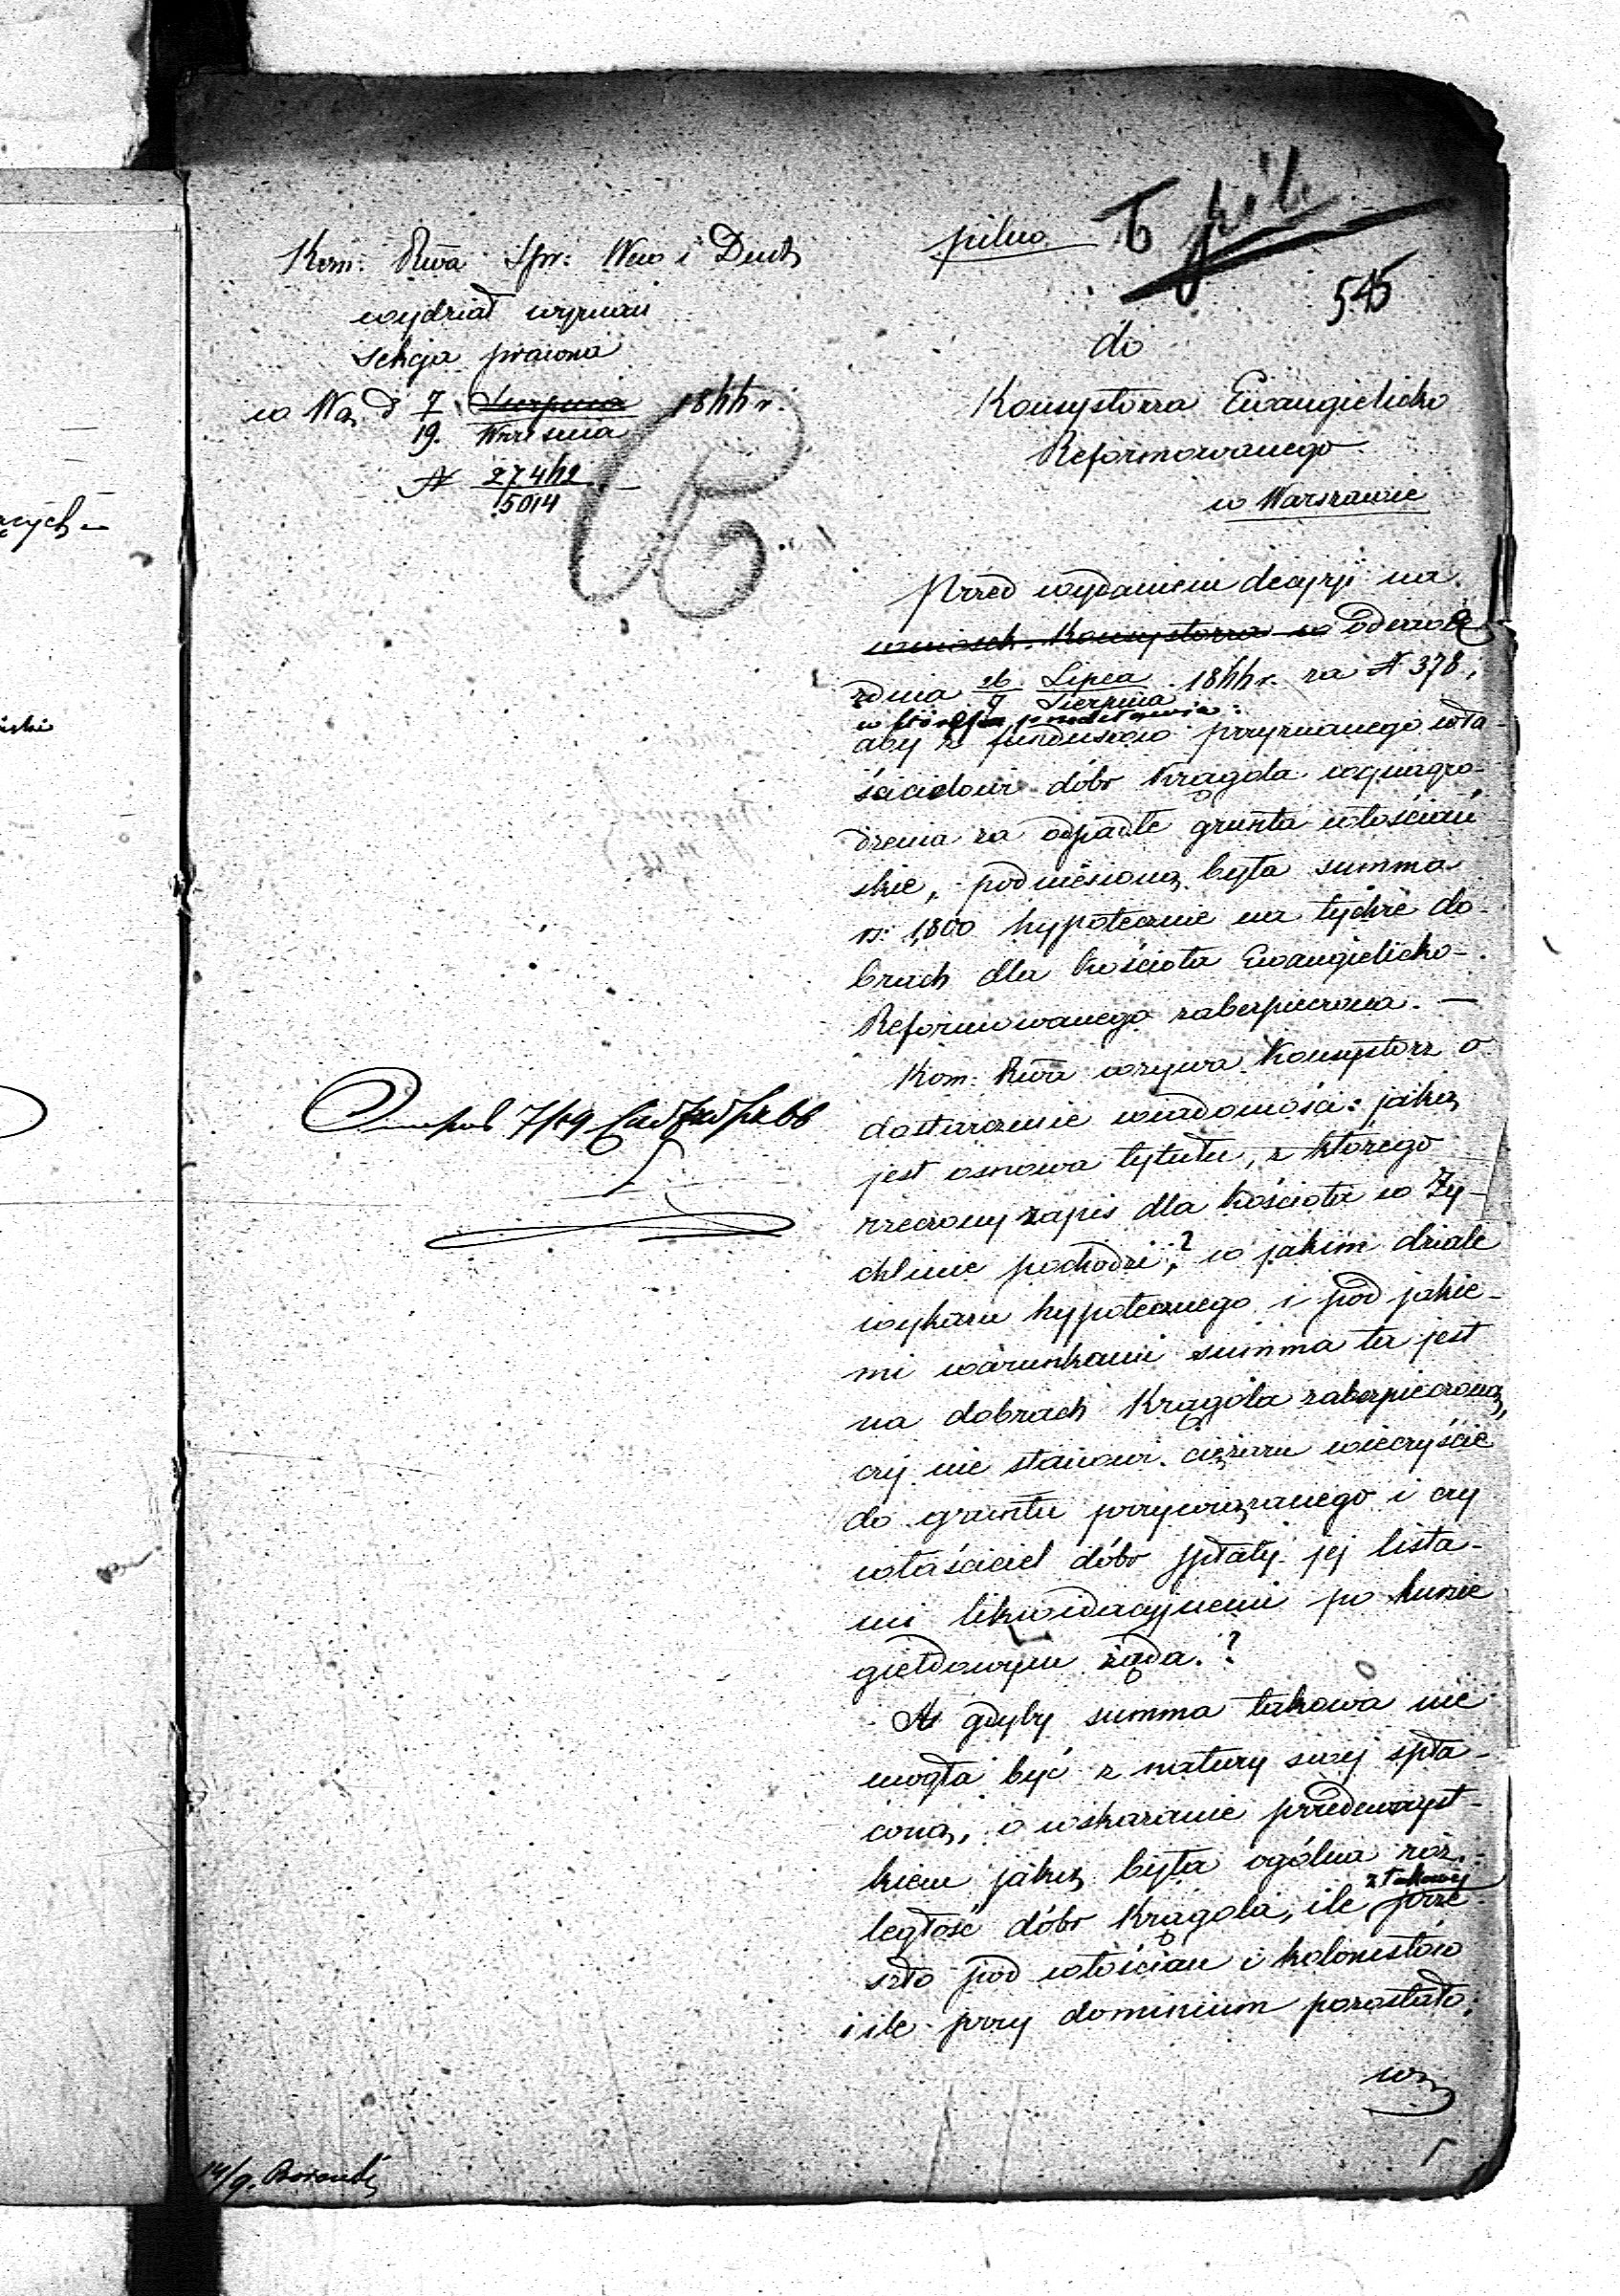 pilno
545
Kom: Rwa Spr: Wew i Duch
wydział wyznań
sekcja prawna
w Wa d 7 Sierpnia 1866 r.
19. Września
N 27462
5014
do
Konsystorza Ewangielicko
Reformowanego
w Warszawie
Przed wydaniem decyzji na
wniosek Konsystorza w odezwie
z dnia 26 Lipca 1866 r. za N 378,
7 Sierpnia
w której przedstawia:
aby z funduszów przyznanego wła-
ścicielowi dóbr Krągola wynagro-
dzenia za odpadłe grunta włościań
skie, podniesioną była summa
rs: 1,800 hypotecznie na tychże do-
brach dla kościoła Ewangielicko-
Reformowanego zabezpieczona. —
Kom: Rwa wzywa Konsystorz o
dostarczenie wiadomości: jaką
jest osnowa tytułu, z którego
rzeczony zapis dla kościoła w Ży-
chlinie pochodzi,? w jakim dziale
wykazu hypotecznego i pod jakie-
mi warunkami summa ta jest
na dobrach Krągola zabezpieczoną,
czy nie stanowi ciężaru wieczyście
do gruntu przywiązanego i czy
właściciel dóbr spłaty jej lista-
mi likwidacyjnemi po kursie
giełdowym żąda.?
A gdyby summa takowa nie
mogła być z natury swej spła-
coną, o wskazanie przedewszyst-
kiem jaką była ogólna roz-
ległość dóbr Krągola, ile z takowej prze-
szło pod włościan i kolonistów
i ile przy dominium pozostało;
14/9.